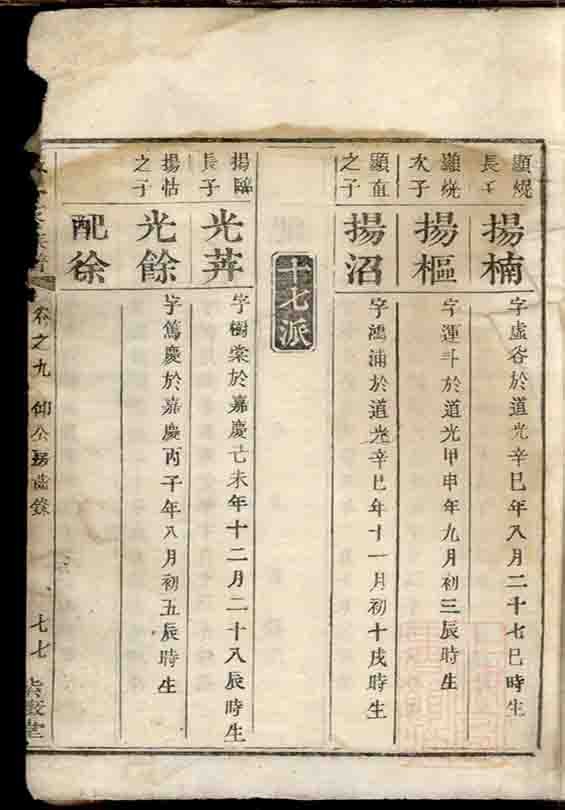 顯焜長子
揚楠
字虛谷於道光辛巳年八月二十七巳時生
次子
揚樞
字運斗於道光甲申年九月初三辰時生
顯直之子
揚沼
字鴻浦於道光辛巳年十一月初十戌時生
十七派
長子
光莾
字樹棠於嘉慶己未年十二月二十八辰時生
揚怙之子
光餘
字篤慶於嘉慶丙子年八月初五辰時生
配徐
卷之九
仰公房齒錄
七七
堂